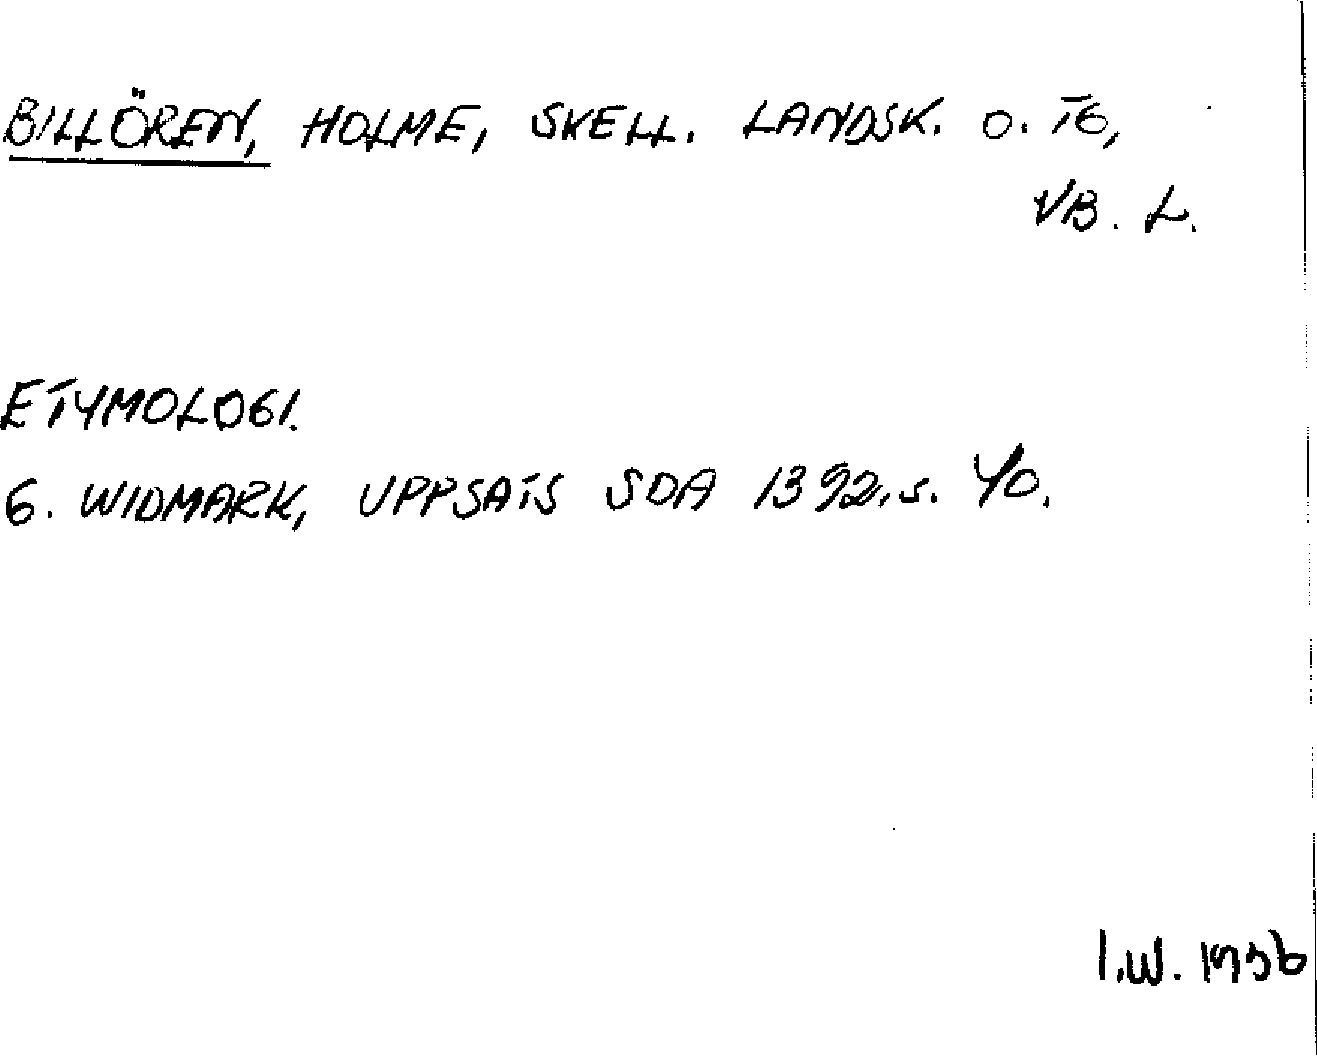 BILLÖREN, HOLME, SKELL. LANDSK. O. TG,
VB. L.
ETYMOLOGI.
G. WIDMARK, UPPSATS SDA 1392, s. 40.
I.W. 1956